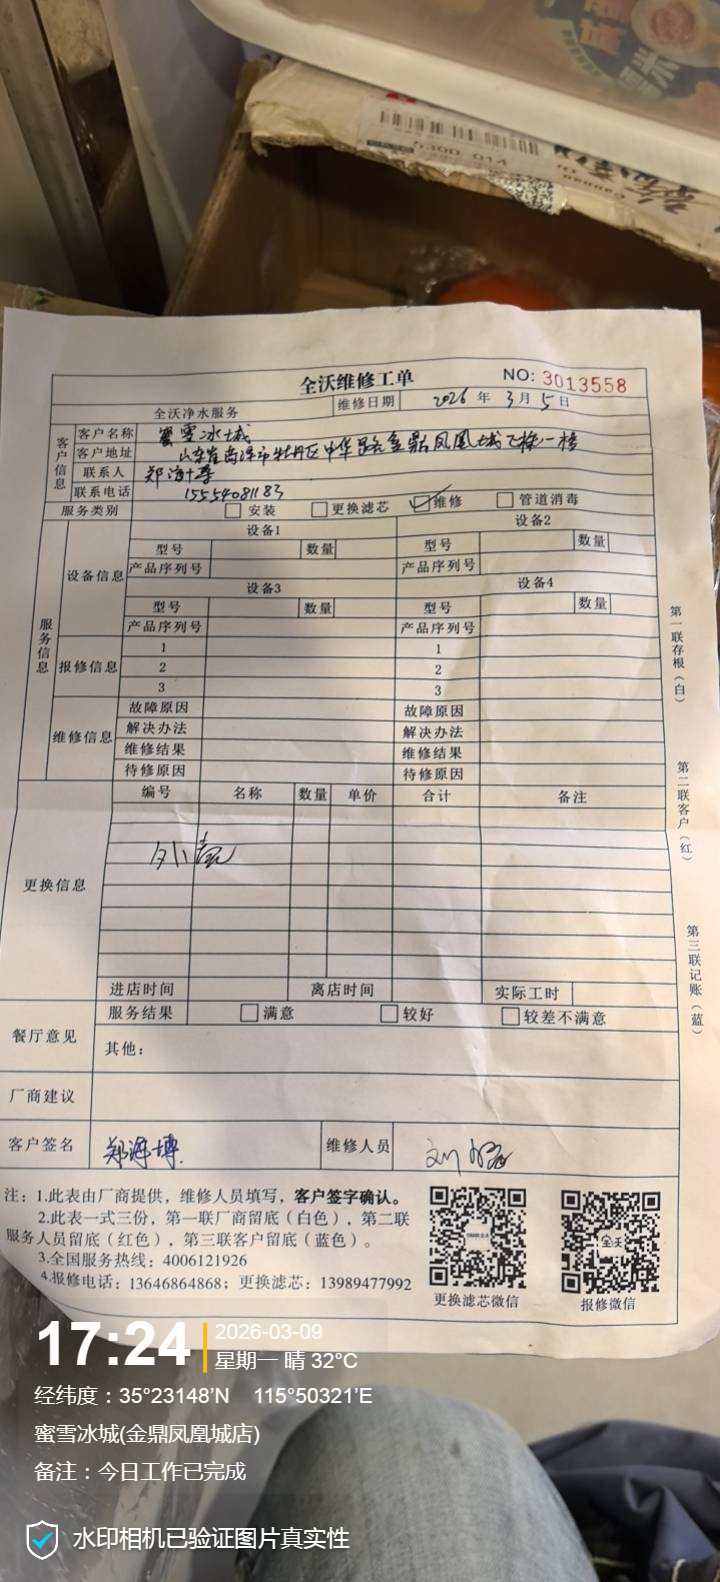 5300 014
全沃维修工单
NO: 3013558
全沃净水服务 维修日期 2026 年 3 月 5 日
客户信息
客户名称 蜜雪冰城
客户地址 山东省菏泽市牡丹区中华路金鼎凤凰城
联系人 郑海博
联系电话 15554081183
服务类别 安装 更换滤芯 维修 管道消毒
服务信息
设备信息
设备1 设备2
型号 数量 型号 数量
产品序列号 产品序列号
设备3 设备4
型号 数量 型号 数量
产品序列号 产品序列号
报修信息
1 1
2 2
3 3
维修信息
故障原因 故障原因
解决办法 解决办法
维修结果 维修结果
待修原因 待修原因
更换信息
编号 名称 数量 单价 合计 备注
进店时间 离店时间 实际工时
餐厅意见
服务结果 满意 较好 较差不满意
其他：
厂商建议
客户签名 郑海博 维修人员
第一联存根（白）
第二联客户（红）
第三联记账（蓝）
注：1.此表由厂商提供，维修人员填写，客户签字确认。
2.此表一式三份，第一联厂商留底（白色），第二联
服务人员留底（红色），第三联客户留底（蓝色）。
3.全国服务热线：4006121926
4.报修电话：13646864868；更换滤芯：13989477992
更换滤芯微信 报修微信
17:24
2026-03-09
星期一 晴 32°C
经纬度：35°23148'N 115°50321'E
蜜雪冰城(金鼎凤凰城店)
备注：今日工作已完成
水印相机已验证图片真实性